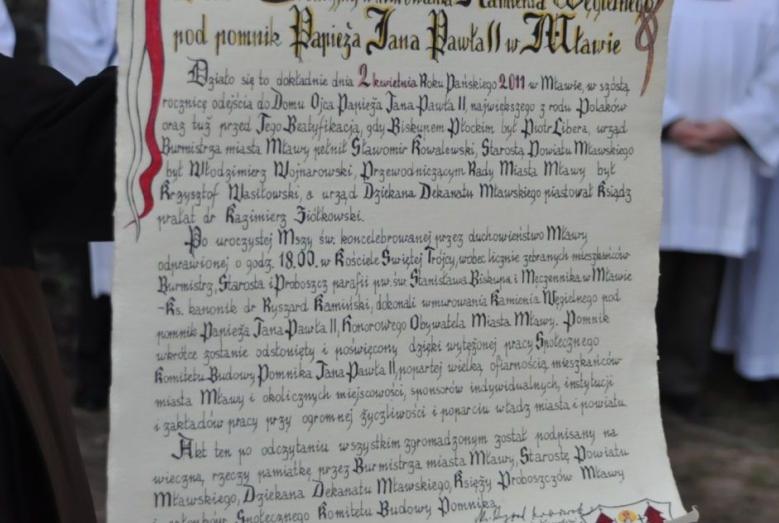 wmurowania Kamienia Węgielnego
pod pomnik Papieża Jana Pawła II w Mławie
Działo się to dokładnie dnia 2 kwietnia Roku Pańskiego 2011 w Mławie, w szóstą
rocznicę odejścia do Domu Ojca Papieża Jana Pawła II, największego z rodu Polaków
oraz tuż przed Jego Beatyfikacją, gdy Biskupem Płockim był Piotr Libera, urząd
Burmistrza miasta Mławy pełnił Sławomir Kowalewski, Starostą Powiatu Mławskiego
był Włodzimierz Wojnarowski, Przewodniczącym Rady Miasta Mławy był
Krzysztof Wasiłowski, a urząd Dziekana Dekanatu Mławskiego piastował Ksiądz
prałat dr Kazimierz Ziółkowski.
Po uroczystej Mszy św. koncelebrowanej przez duchowieństwo Mławy
odprawionej o godz. 18.00. w Kościele Świętej Trójcy, wobec licznie zebranych mieszkańców
Burmistrz, Starosta i Proboszcz parafii p.w. św. Stanisława Biskupa i Męczennika w Mławie
-Ks. kanonik dr Ryszard Kamiński, dokonali wmurowania Kamienia Węgielnego pod
pomnik Papieża Jana Pawła II, Honorowego Obywatela Miasta Mławy. Pomnik
wkrótce zostanie odsłonięty i poświęcony dzięki wytężonej pracy Społecznego
Komitetu Budowy Pomnika Jana Pawła II, popartej wielką ofiarnością mieszkańców
miasta Mławy i okolicznych miejscowości, sponsorów indywidualnych, instytucji
i zakładów pracy przy ogromnej życzliwości i poparciu władz miasta i powiatu.
Akt ten po odczytaniu wszystkim zgromadzonym został podpisany na
wieczną, rzeczy pamiątkę przez Burmistrza miasta Mławy, Starostę Powiatu
Mławskiego, Dziekana Dekanatu Mławskiego, Księży Proboszczów Mławy
i członków Społecznego Komitetu Budowy Pomnika.